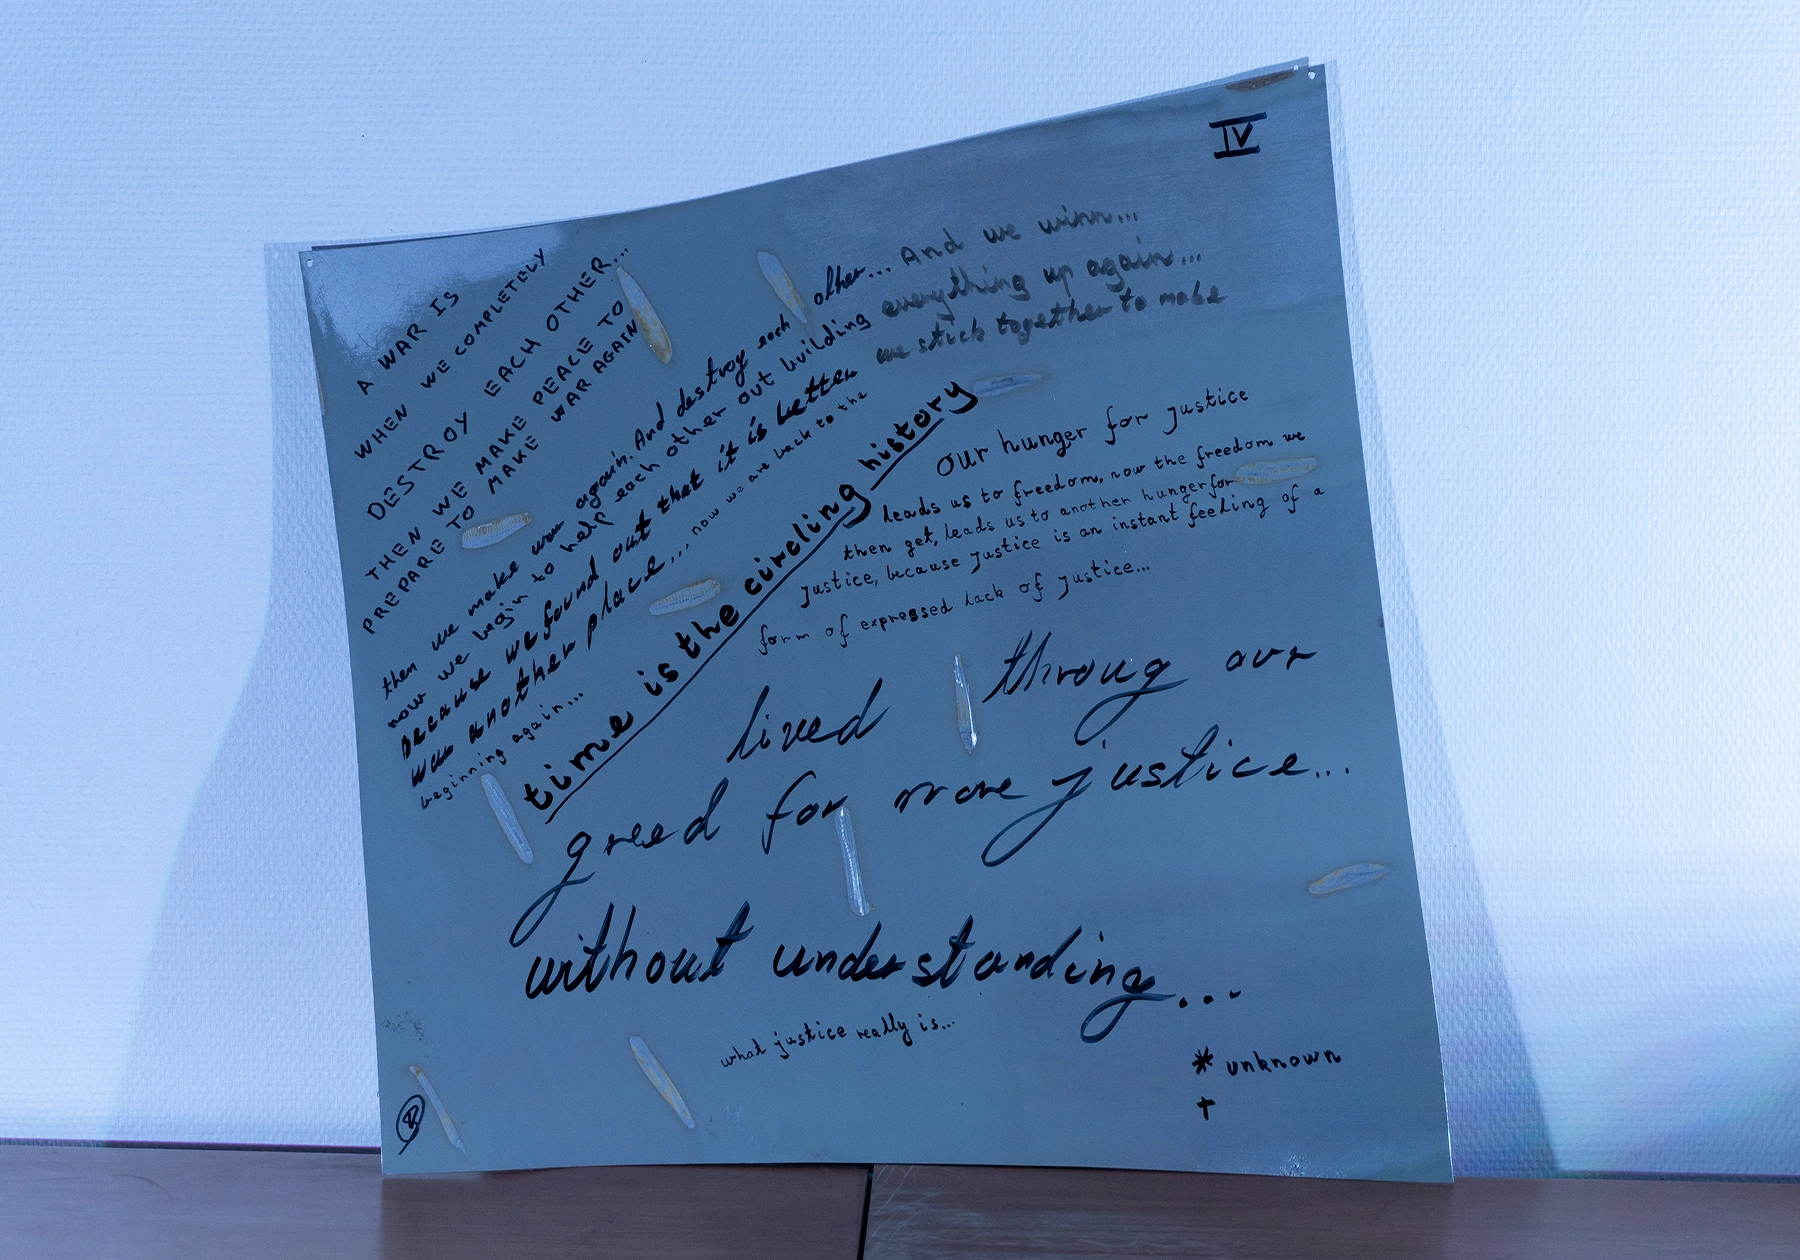 IV
A WAR IS
WHEN WE COMPLETELY
DESTROY EACH OTHER...
THEN WE MAKE PEACE TO
PREPARE TO MAKE WAR AGAIN
then we make war again. And destroy each other... And we winn...
now we begin to help each other out building everything up again...
BECAUSE we found out that it is better we stick together to make
war another place... now we are back to the
beginning again...
time is the circling history
Our hunger for justice
leads us to freedom, now the freedom we
then get, leads us to another hunger for
justice, because justice is an instant feeling of a
form of expressed lack of justice...
lived throug our
greed for more justice...
without understanding...
what justice really is...
* unknown
†